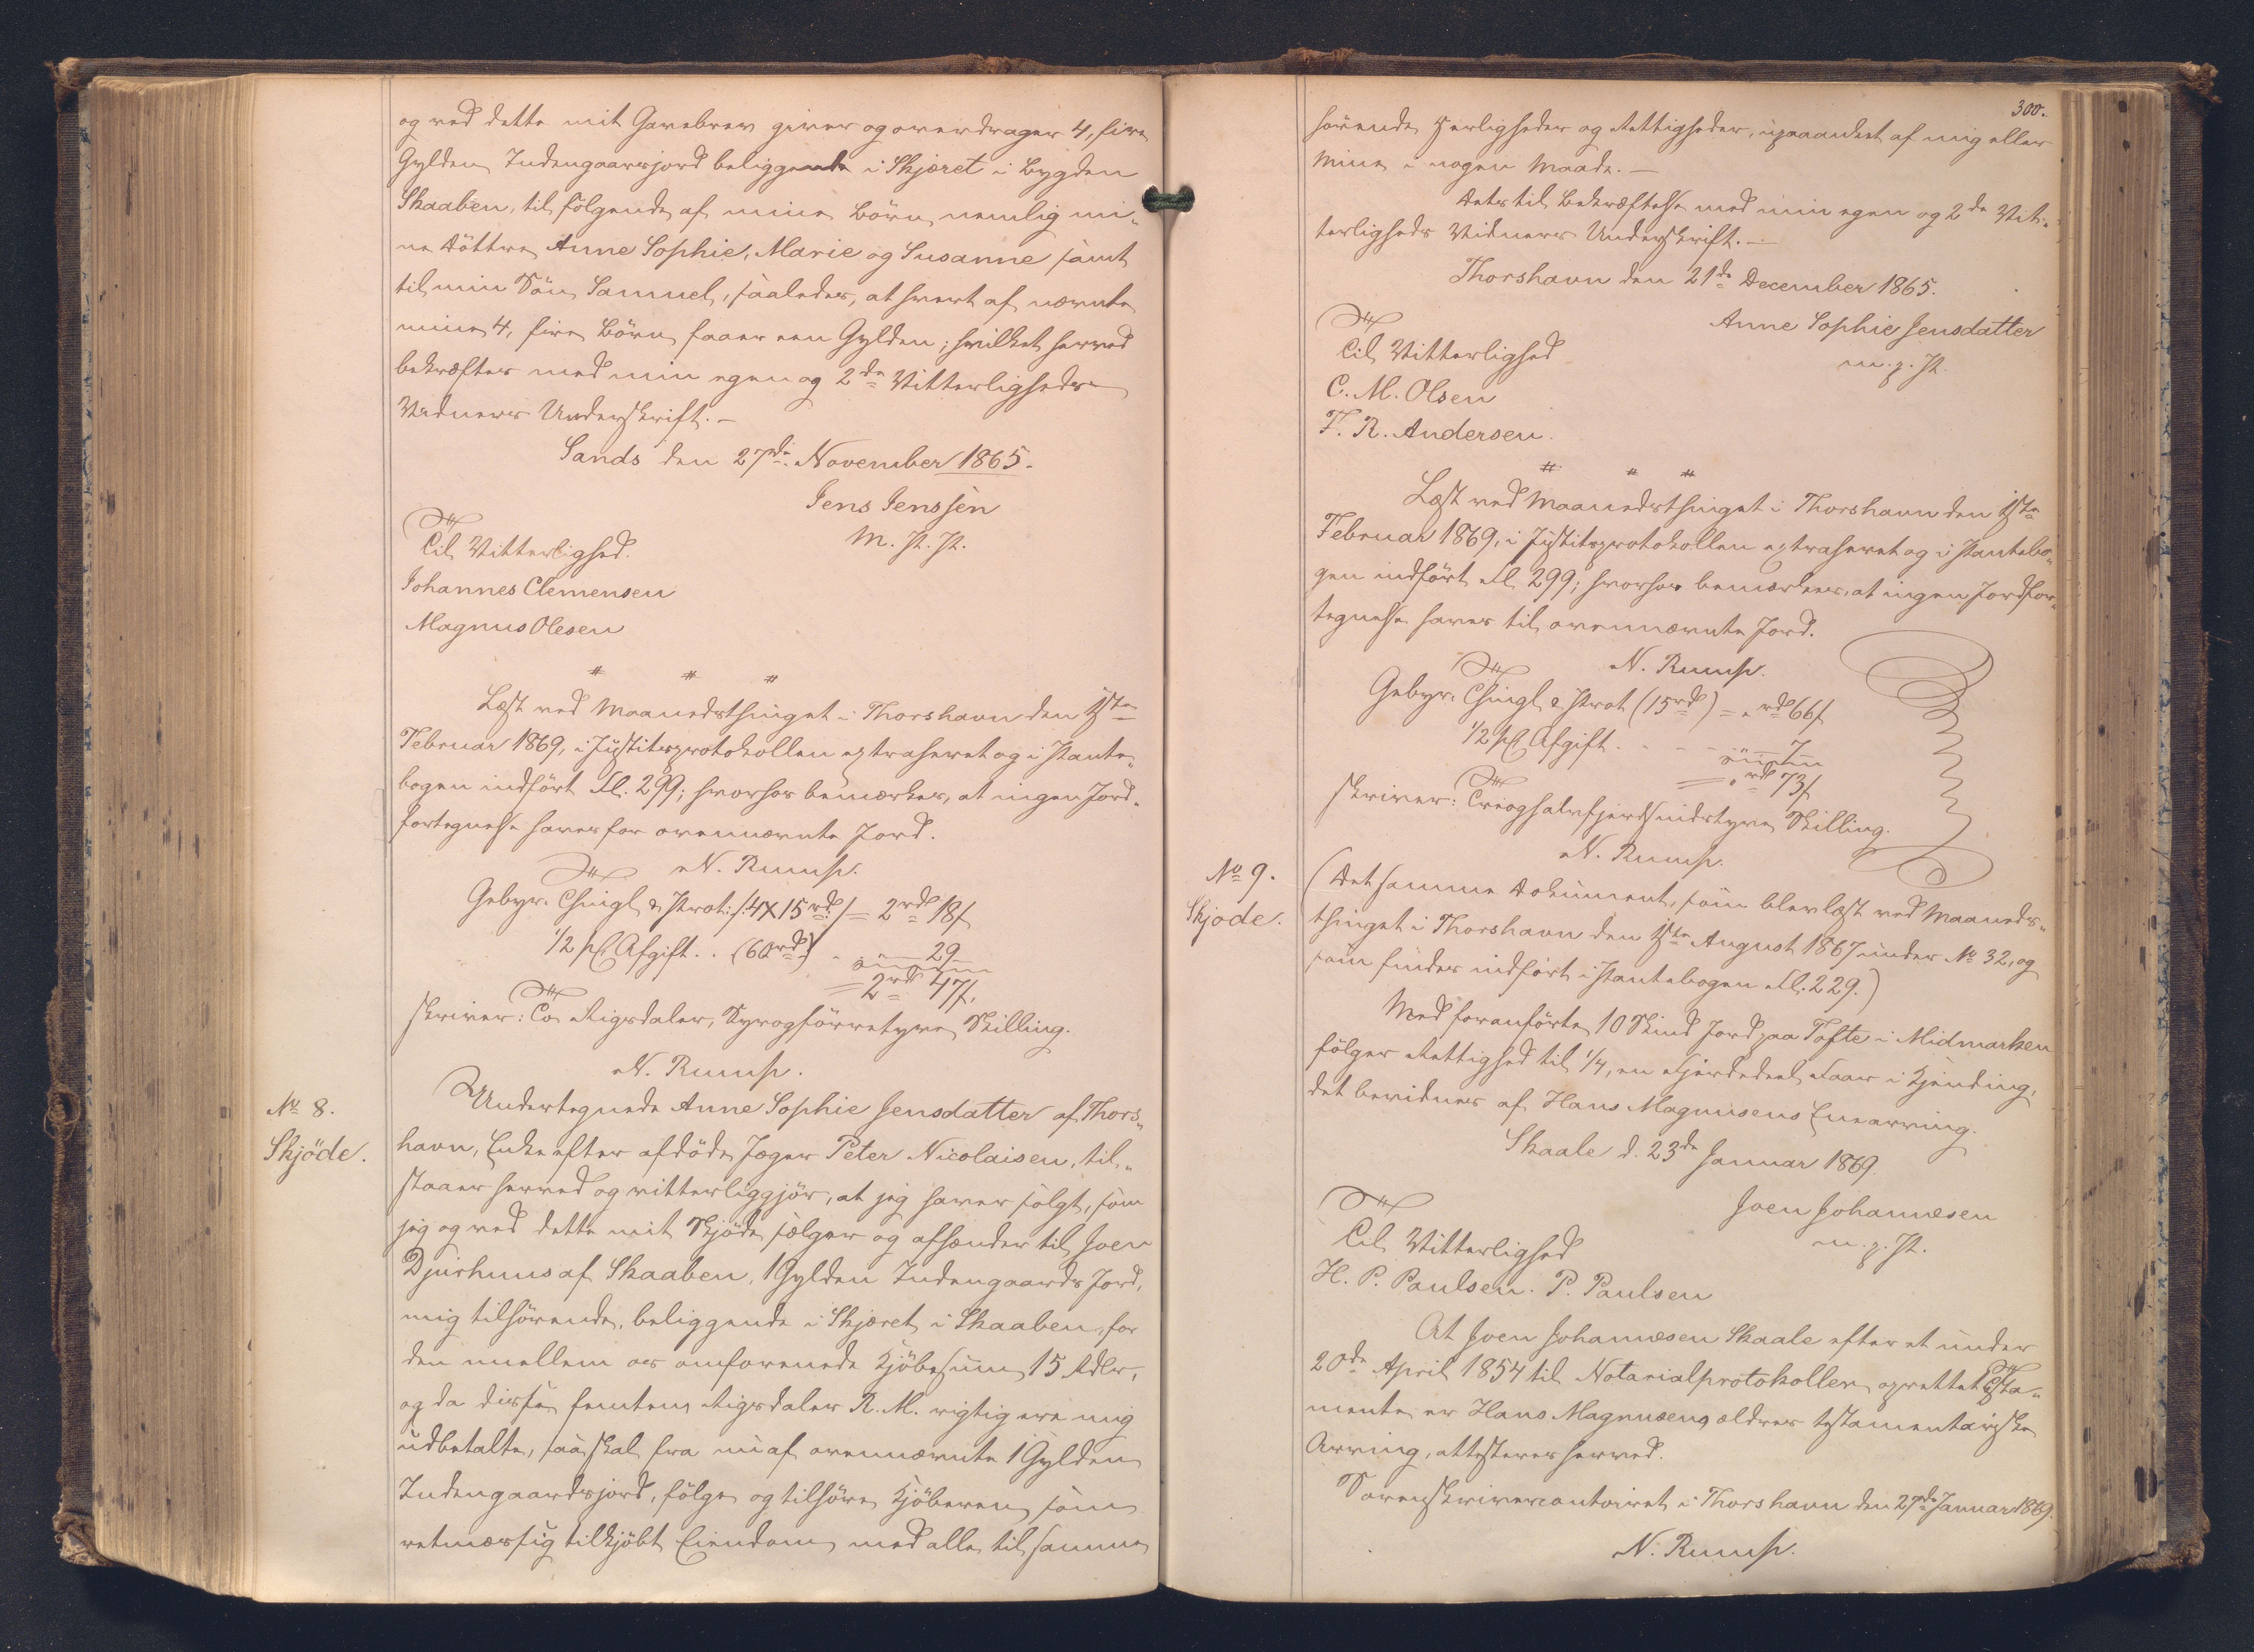 og ved dette mit Gavebrev giver og overdrager 4, fire
Gylden Indengaardsjord beliggende i Skjoret i Bygden
Skaaben, til følgende af mine Börn, nemlig mi„
ne Döttre Anne Sophie, Marie og Susanne samt
til min Sön Samuel, saaledes, at hvert af nævnte
mine 4, fire Börn faaer een Gylden; hvilket herved
bekræftes med min egen og 2de Vitterligheds„
Vidners Underskrift. —
Sands den 27de November 1865.
Jens Jenssen
M. P. P.
Til Vitterlighed.
Johannes Clemensen
Magnus Olesen
# # #
Læst ved Maanedsthinget i Thorshavn den 1ste
Februar 1869, i Justitsprotokollen extraheret og i Pante„
bogen indfört Fl. 299; hvorhos bemærkes, at ingen Jord„
fortegnelse haves for ovennævnte Jord.
N. Rump.
Gebyr. Thingl. & Prot: /: 4X15rd :/ = 2rd 18ſ
1/2 pCt Afgift . . (60rd) . „ „ 29 „
= 2rd 47ſ,
skriver: To Rigsdaler, Syvogförretyve Skilling.
N. Rump.
No 8.
Skjöde.
Undertegnede Anne Sophie Jensdatter af Thors„
havn, Enke efter afdöde Jæger Peter Nicolaisen, til„
staaer herved og vitterliggjör, at jeg haver solgt, som
jeg og ved dette mit Skjöde sælger og afhænder til Joen
Djurhuus af Skaaben, 1 Gylden Indengaards Jord,
mig tilhörende, beliggende i Skjoret i Skaaben, for
den imellem os omforenede Kjöbesum 15 Rdlr,
og da disse femten Rigsdaler R. M. rigtig ere mig
udbetalte, saa skal fra nu af ovennævnte 1 Gylden
Indengaardsjord, fölge og tilhöre Kjöberen som
retmæssig tilkjöbt Eiendom med alle til samme
300.
hörende Herligheder og Rettigheder, upaaanket af mig eller
Mine i nogen Maade. —
Dets til Bekræftelse med min egen og 2de Vit„
terligheds Vidners Underskrift. —
Thorshavn den 21de December 1865.
Anne Sophie Jensdatter
m. p. P.
Til Vitterlighed
C. M. Olsen
F. R. Andersen.
# # #
Læst ved Maanedsthinget i Thorshavn den 1ste
Februar 1869, i Justitsprotokollen extraheret og i Pantebo„
gen indfört Fl. 299; hvorhos bemærkes, at ingen Jordfor„
tegnelse haves til ovennævnte Jord.
N. Rump.
Gebyr. Thingl. & Prot (15rd) = „ rd 66ſ
1/2 pCt Afgift . - - - „ „ 7 „
= „ rd 73ſ
skriver: Treoghalvfjerdsindstyve Skilling.
N. Rump.
No 9.
Skjöde.
(Det samme Dokument, som blev læst ved Maaneds„
thinget i Thorshavn den 1ste August 1867 under No 32, og
som findes indfört i Pantebogen Fl. 229.)
Med foranförte 10 Skind Jord paa Tofte i Midmarken
fölger Rettighed til 1/4, en Fjerdedeel Faar i Kjending,
det bevidnes af Hans Magnusens Enearving.
Skaale d. 23de Januar 1869.
Joen Johannesen
m. p. P.
Til Vitterlighed
H. P. Poulsen. P. Poulsen
At Joen Johannesen Skaale efter et under
20de April 1854 til Notarialprotokollen oprettet Testa„
mente er Hans Magnusens ældres testamentariske
Arving, attesteres herved.
Sorenskrivercontoiret i Thorshavn den 27de Januar 1869.
N. Rump.